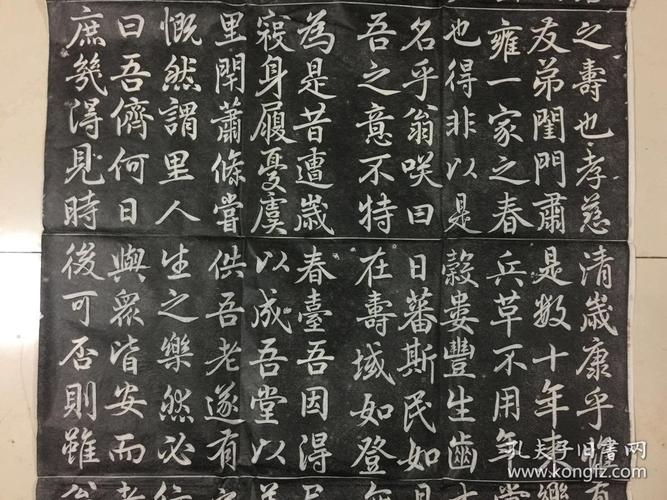 之壽也孝慈
友弟閨門肅
雍一家之春
也得非以是
名乎翁咲曰
吾之意不特
為是昔遭歲
祲身履憂虞
里閈蕭條嘗
慨然謂里人
曰吾儕何日
庶幾得見時
清歲康乎
是数十年來樂
兵革不用年
穀婁豐生齒
日蕃斯民如
在壽域如登
春臺吾因得
以成吾堂以
供吾老遂有
生之樂然必
與眾皆安而
後可否則雖
孔夫子旧书网
www.kongfz.com